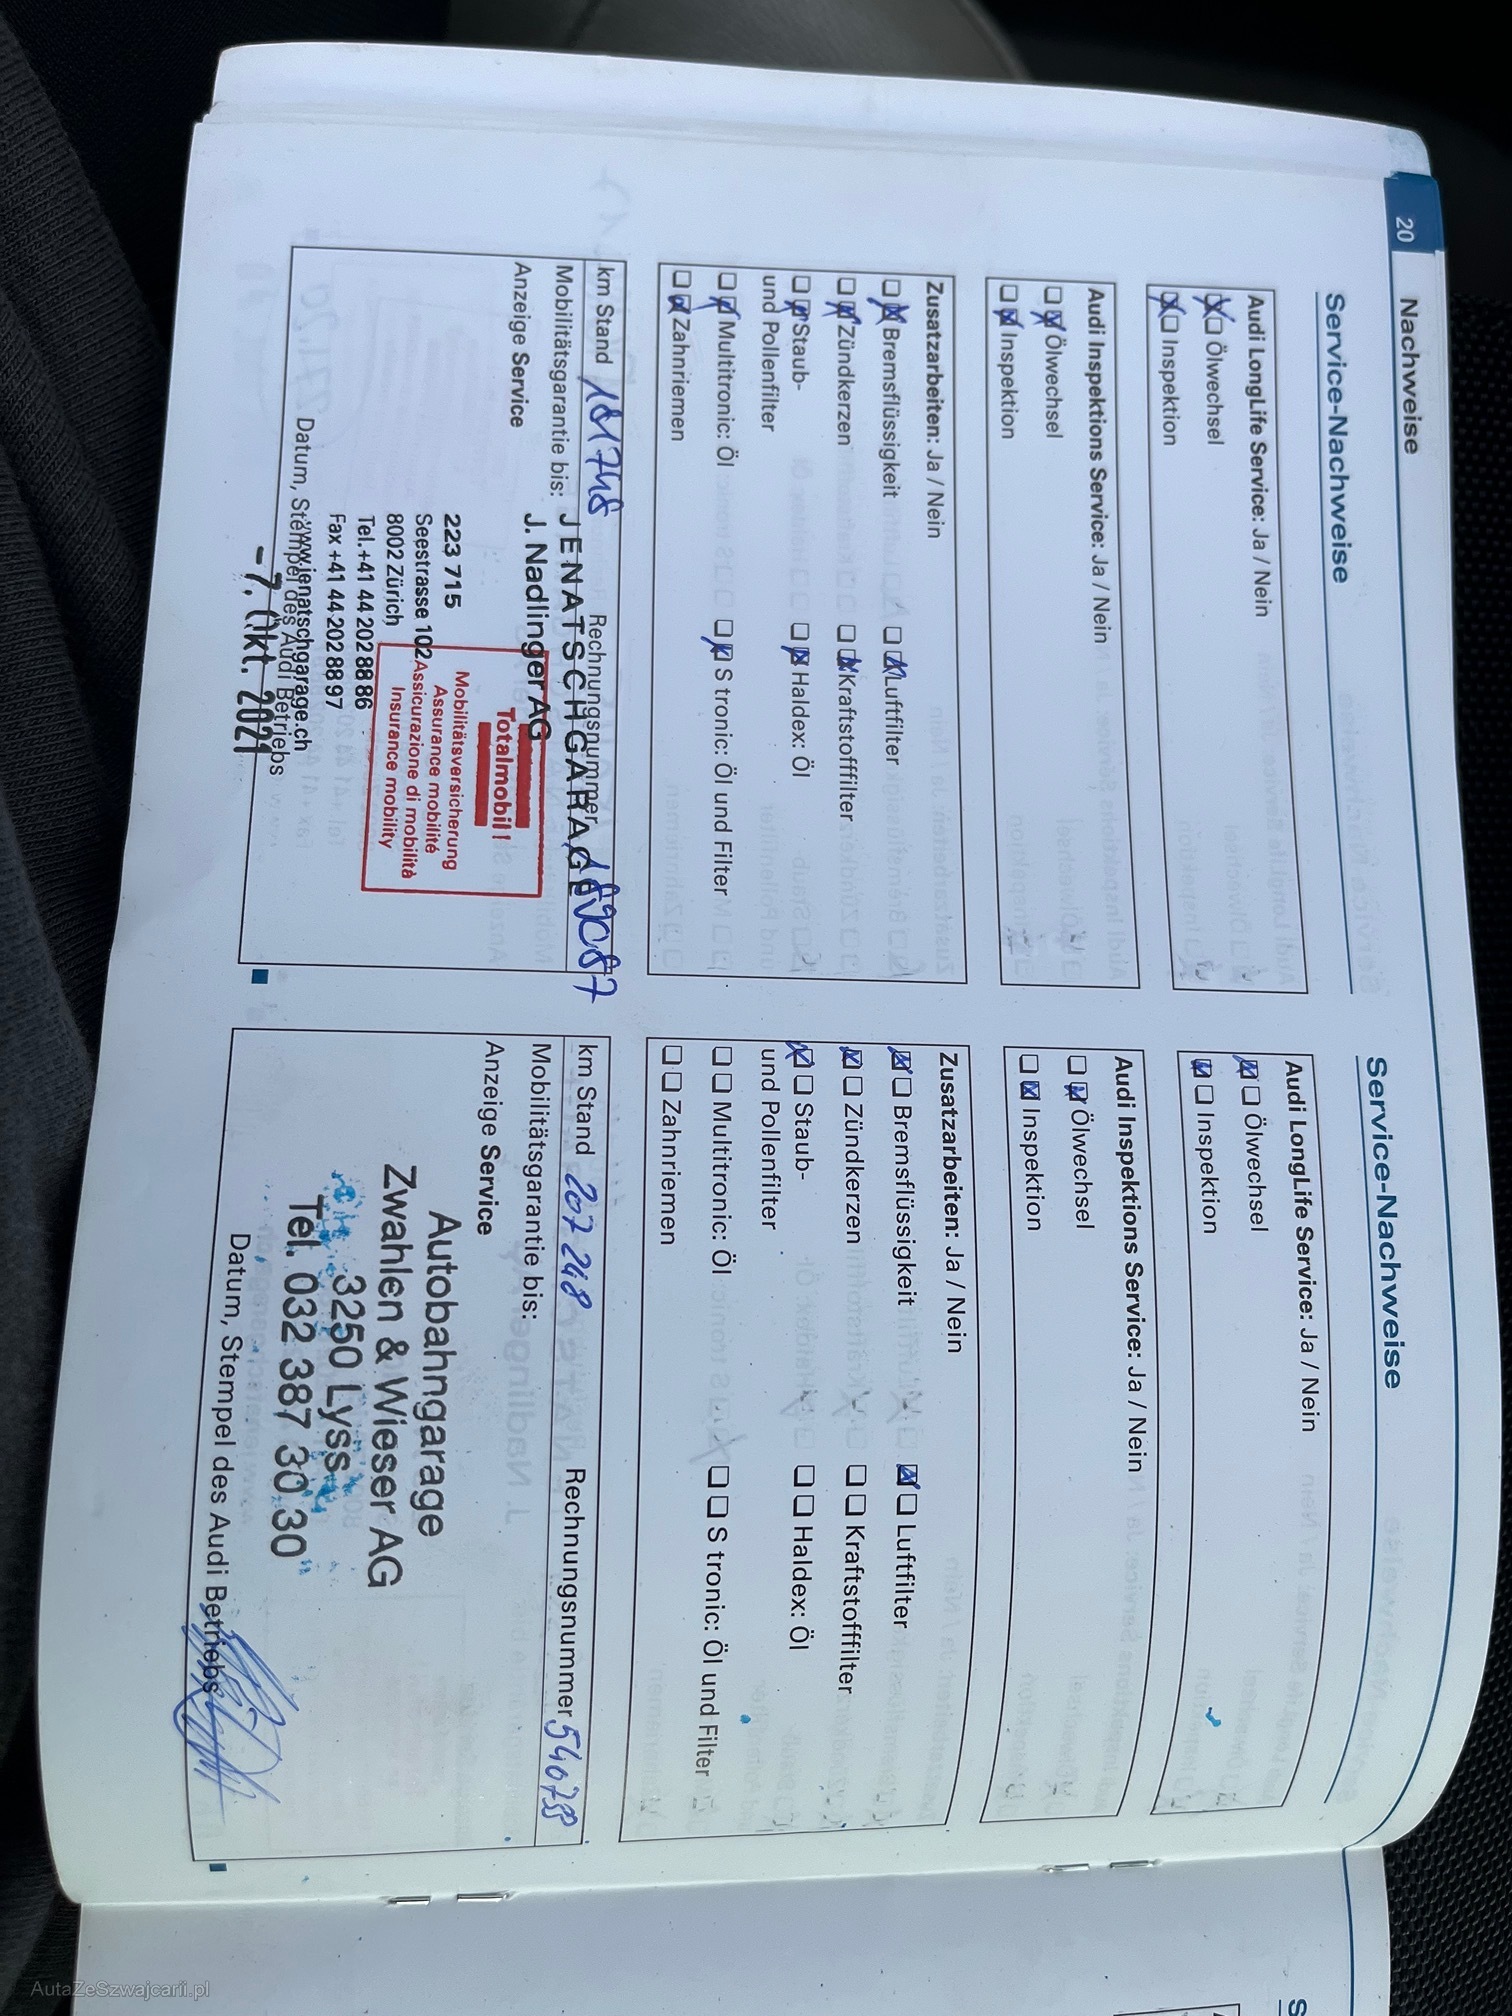 20 Nachweise
Service-Nachweise
Audi LongLife Service: Ja / Nein
Ölwechsel
Inspektion
Audi Inspektions Service: Ja / Nein
Ölwechsel
Inspektion
Zusatzarbeiten: Ja / Nein
Bremsflüssigkeit Luftfilter
Zündkerzen Kraftstofffilter
Staub- Haldex: Öl
und Pollenfilter
Multitronic: Öl S tronic: Öl und Filter
Zahnriemen
km Stand 181748 Rechnungsnummer
Mobilitätsgarantie bis:
Anzeige Service
JENATSCHGARAGE
J. Nadlinger AG
223 715
Seestrasse 102
8002 Zürich
Tel. +41 44 202 88 86
Fax +41 44 202 88 97
www.jenatschgarage.ch
Totalmobil!
Mobilitätsversicherung
Assurance mobilité
Assicurazione di mobilità
Insurance mobility
Datum, Stempel des Audi Betriebs
-7. Okt. 2021
Service-Nachweise
Audi LongLife Service: Ja / Nein
Ölwechsel
Inspektion
Audi Inspektions Service: Ja / Nein
Ölwechsel
Inspektion
Zusatzarbeiten: Ja / Nein
Bremsflüssigkeit Luftfilter
Zündkerzen Kraftstofffilter
Staub- Haldex: Öl
und Pollenfilter
Multitronic: Öl S tronic: Öl und Filter
Zahnriemen
km Stand 207 248 Rechnungsnummer 540788
Mobilitätsgarantie bis:
Anzeige Service
Autobahngarage
Zwahlen & Wieser AG
3250 Lyss
Tel. 032 387 30 30
Datum, Stempel des Audi Betriebs
S
AutaZeSzwajcarii.pl